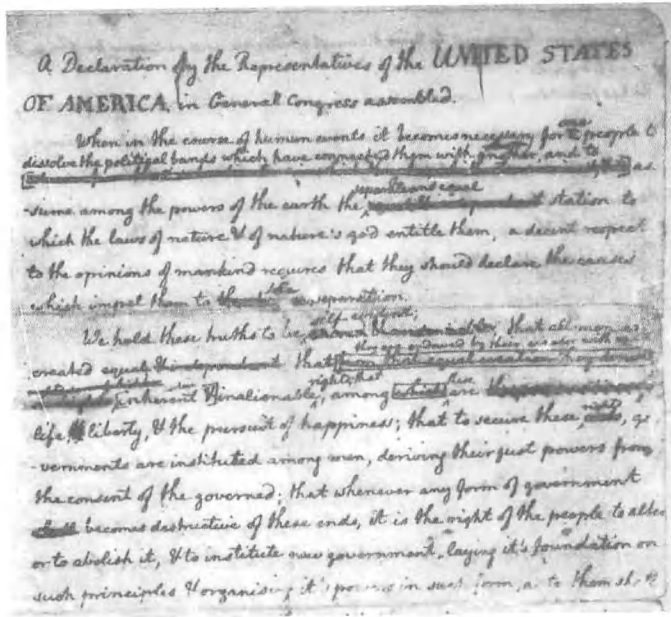 A Declaration by the Representatives of the UNITED STATES
OF AMERICA, in General Congress assembled.
When in the course of human events it becomes necessary for one people to
dissolve the political bands which have connected them with another, and to
as
separate and equal
-sume among the powers of the earth the station to
which the laws of nature & of nature's god entitle them, a decent respect
to the opinions of mankind requires that they should declare the causes
which impel them to the separation.
self-evident;
We hold these truths to be that all men are
they are endowed by their creator with
created equal & independant that from that equal creation they
rights; that these
inherent & inalienable among which are
life, liberty, & the pursuit of happiness; that to secure these rights, go
-vernments are instituted among men, deriving their just powers from
the consent of the governed; that whenever any form of government
shall becomes destructive of these ends, it is the right of the people to alter
or to abolish it, & to institute new government, laying it's foundation on
such principles & organising it's powers in such form, as to them